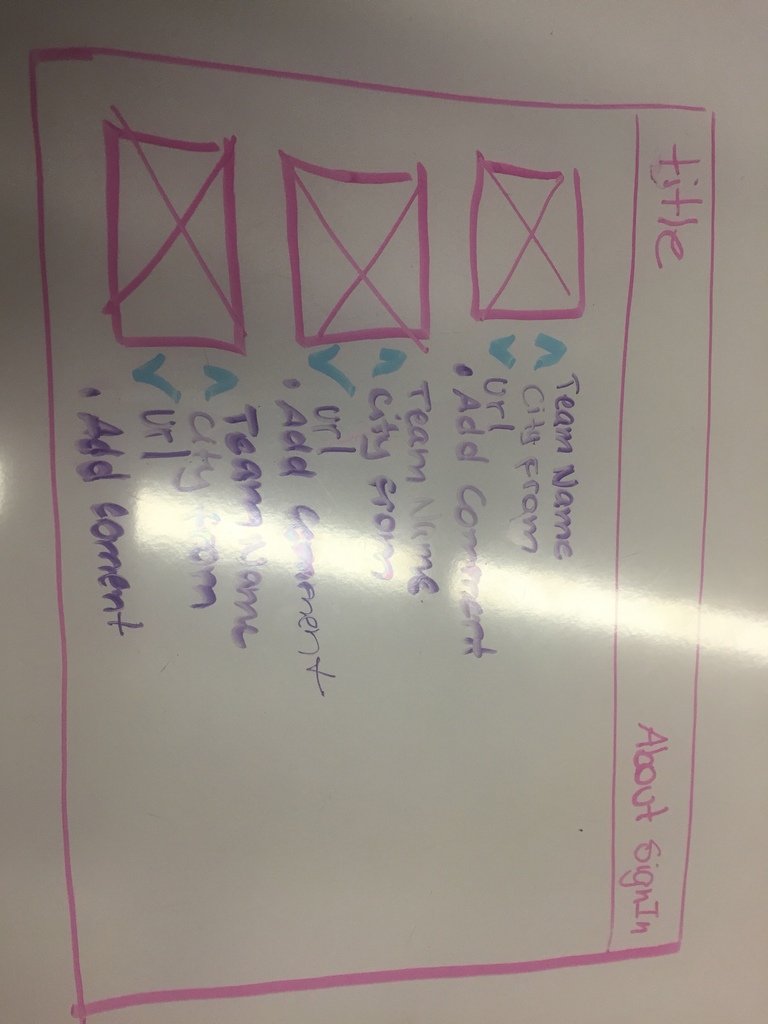 title
About SignIn
Team Name
City From
Url
• Add Comment
Team Name
City From
Url
• Add Comment
Team Name
City From
Url
• Add Coment